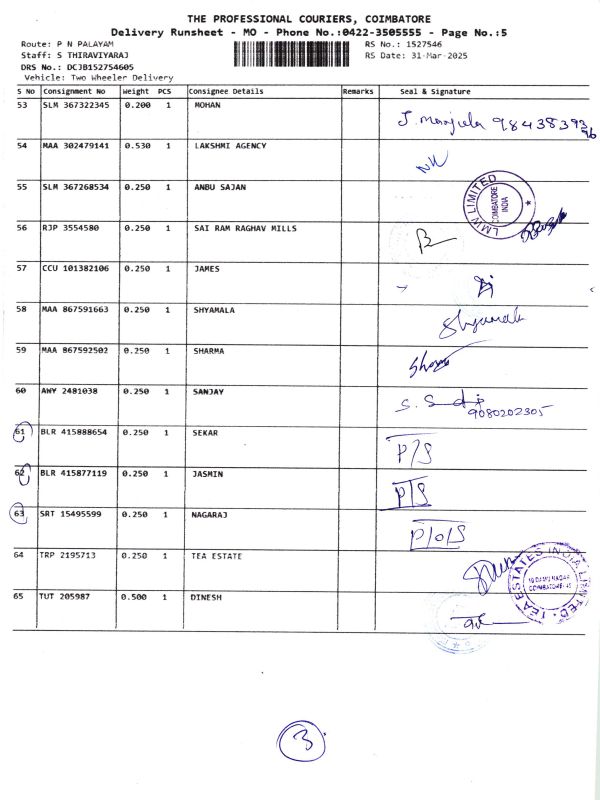 THE PROFESSIONAL COURIERS, COIMBATORE
Delivery Runsheet - MO - Phone No.:0422-3505555 - Page No.:5
Route: P N PALAYAM
RS No.: 1527546
Staff: S THIRAVIYARAJ
RS Date: 31-Mar-2025
DRS No.: DCJB152754605
Vehicle: Two Wheeler Delivery
S No Consignment No Weight PCS Consignee Details Remarks Seal & Signature
53 SLM 367322345 0.200 1 MOHAN
54 MAA 302479141 0.530 1 LAKSHMI AGENCY
55 SLM 367268534 0.250 1 ANBU SAJAN
LMW LIMITED COIMBATORE INDIA
56 RJP 3554580 0.250 1 SAI RAM RAGHAV MILLS
57 CCU 101382106 0.250 1 JAMES
58 MAA 867591663 0.250 1 SHYAMALA Shyamala
59 MAA 867592502 0.250 1 SHARMA
60 AWY 2481038 0.250 1 SANJAY
9080202305
61 BLR 415888654 0.250 1 SEKAR P/S
62 BLR 415877119 0.250 1 JASMIN P/S
63 SRT 15495599 0.250 1 NAGARAJ P/O/S
64 TRP 2195713 0.250 1 TEA ESTATE
TEA ESTATES INDIA LIMITED
COIMBATORE-45
65 TUT 205987 0.500 1 DINESH
3